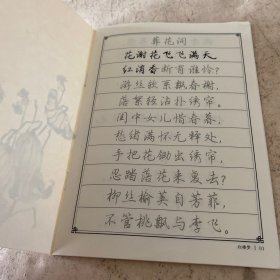 葬花词
花谢花飞飞满天
红消香断有谁怜？
游丝软系飘春榭，
落絮轻沾扑绣帘。
闺中女儿惜春暮，
愁绪满怀无释处，
手把花锄出绣帘，
忍踏落花来复去？
柳丝榆荚自芳菲，
不管桃飘与李飞。
红楼梦 | 01